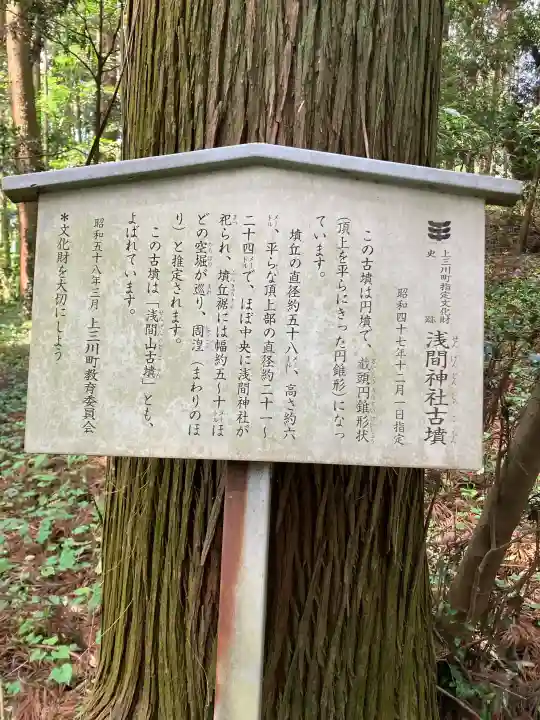 上三川町指定文化財
史跡 浅間神社古墳
昭和四十七年十二月一日指定
この古墳は円墳で、截頭円錐形状
(頂上を平らにきった円錐形)になっ
ています。
墳丘の直径約五十八メートル、高さ約六
メートル、平らな頂上部の直径約二十一〜
二十四メートルで、ほぼ中央に浅間神社が
祀られ、墳丘裾には幅約五〜十メートルほ
どの空堀が巡り、周湟(まわりのほ
り)と推定されます。
この古墳は「浅間山古墳」とも、
よばれています。
昭和五十八年三月 上三川町教育委員会
*文化財を大切にしよう